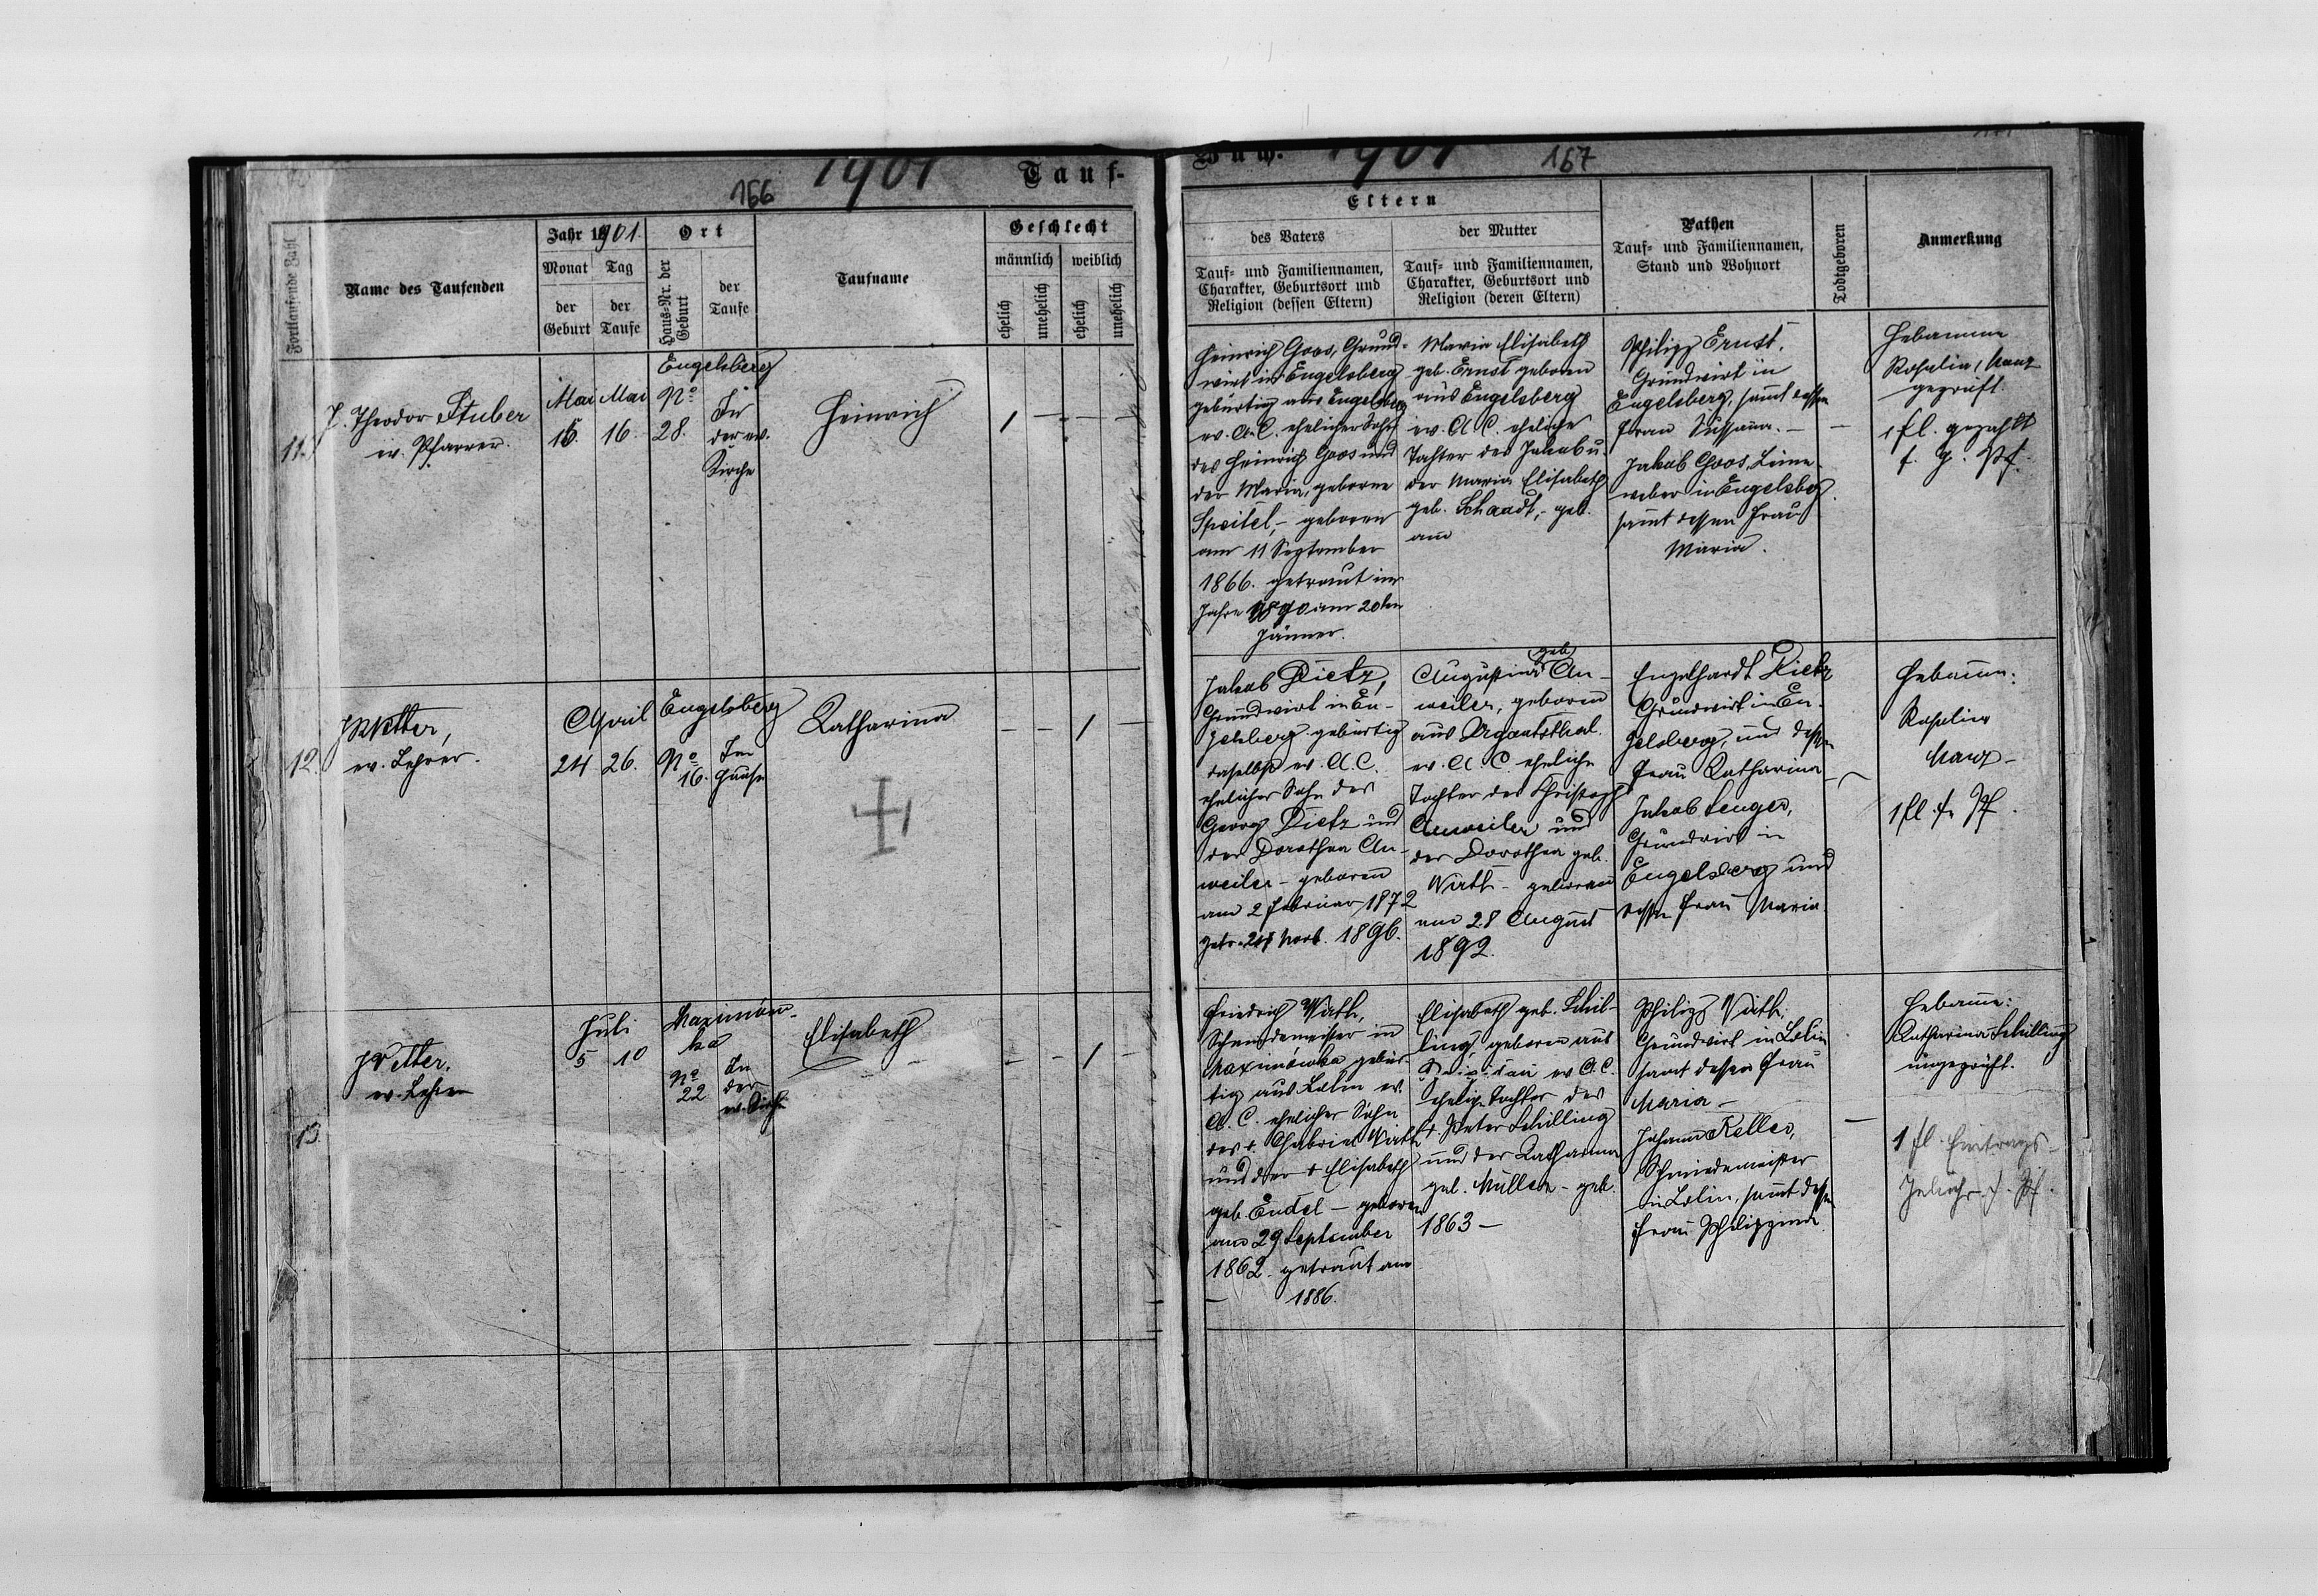 1901 Tauf-
166
Fortlaufende Zahl
Name des Taufenden
Jahr 1901.
Monat Tag
der Geburt
der Taufe
Ort
Haus-Nr. der Geburt
der Taufe
Taufname
Geschlecht
männlich weiblich
ehelich
unehelich
ehelich
unehelich
Buch. 1901 167
Eltern
des Vaters
Tauf- und Familiennamen,
Charakter, Geburtsort und
Religion (dessen Eltern)
der Mutter
Tauf- und Familiennamen,
Charakter, Geburtsort und
Religion (deren Eltern)
Pathen
Tauf- und Familiennamen,
Stand und Wohnort
Todtgeboren
Anmerkung
11.
J. Theodor Stuber
ev. Pfarrer.
Mai Mai
15. 16.
Engelsberg
No
28.
In
der ev.
Kirche
Heinrich
1 — — —
Heinrich Goos, Grund-
wirt in Engelsberg
gebürtig aus Engelsberg
ev. A.C. ehelicher Sohn
des Heinrich Goos und
der Maria, geborne
Speitel, – geboren
am 11 September
1866. getraut im
Jahre 1890 am 20ten
Jänner.
Maria Elisabeth
geb. Ernst geboren
aus Engelsberg
ev. A.C. eheliche
Tochter des Jakob u.
der Maria Elisabeth
geb. Schaadt, – geb.
am
Philipp Ernst,
Grundwirt in
Engelsberg, samt dessen
Frau Susanna. –
Jakob Goos, Leine-
weber in Engelsberg
samt dessen Frau
Maria.
—
Hebamme
Rosalia Manz
geprüft.
1 fl. gezahlt
f. g. Pf.
12.
J Vetter,
ev. Lehrer.
April
24 26.
Engelsberg
No
16.
Im
Hause
Katharina
— — 1 —
Jakob Dietz,
Grundwirt in En-
gelsberg gebürtig
daselbst ev. A.C.
ehelicher Sohn des
Georg Dietz und
der Dorothea An-
weiler – geboren
am 2 Februar 1872
getr. 24 Novb. 1896.
geb
Augustina An-
weiler, geboren
aus Ugartsthal.
ev. A.C. eheliche
Tochter des Christoph
Anweiler und
der Dorothea geb.
Wirth – geboren
am 28 August
1892.
Engelhardt Dietz
Grundwirt in En-
gelsberg, und dessen
Frau Katharina –
Jakob Lenger,
Grundwirt in
Engelsberg und
dessen Frau Maria.
—
Hebamme:
Rosalia
Manz –
1 fl. f. Pf.
13.
J Vetter.
ev. Lehrer
Juli
5 10
Maximów-
ka
No
22
In
der
ev. Kirche
Elisabeth
— — 1 —
Friedrich Wirth,
Schmiedemeister in
Maximówka gebür-
tig aus Lolin ev.
A.C. ehelicher Sohn
des +. Gabriel Wirth
und der + Elisabeth
geb. Endel – geboren
am 29 September
1862. getraut am
— 1886.
Elisabeth geb. Schil-
ling, geboren aus
ev A.C.
eheliche Tochter des
+. Peter Schilling
und der Katharina
geb. Müller – geb.
1863 –
Philipp Wirth,
Grundwirt in Lolin
samt dessen Frau
Maria –
Johann Keller,
Schmiedemeister
in Lolin, samt dessen
Frau Philippina.
—
Hebamme:
Katharina Schilling
ungeprüft.
1 fl. Eintrags-
gebühr f. Pf.